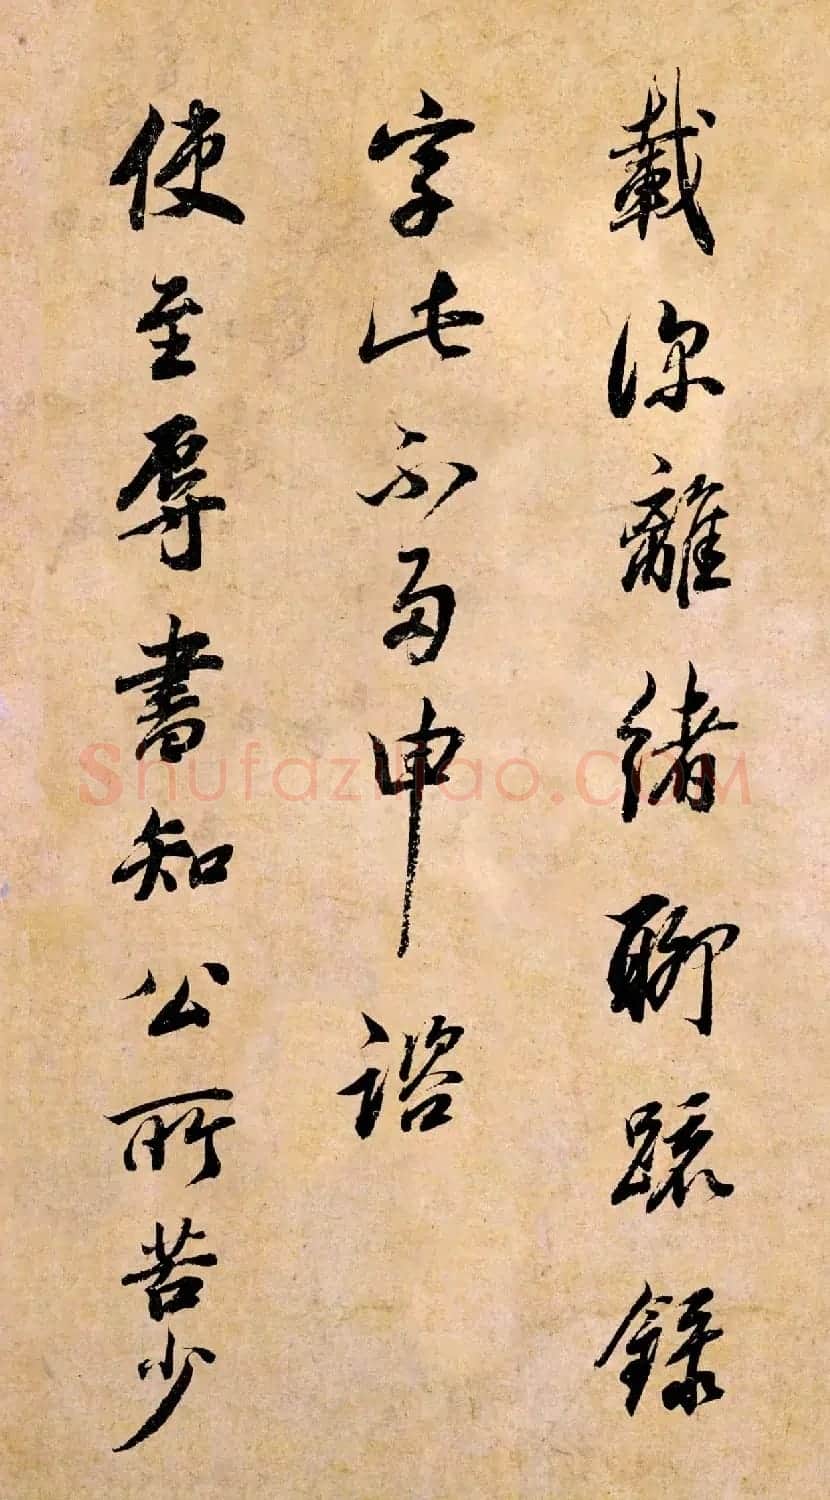 載深離緒聊疏錄
字此不多申諮
使至辱書知公所苦少
Shufaziliao.COM